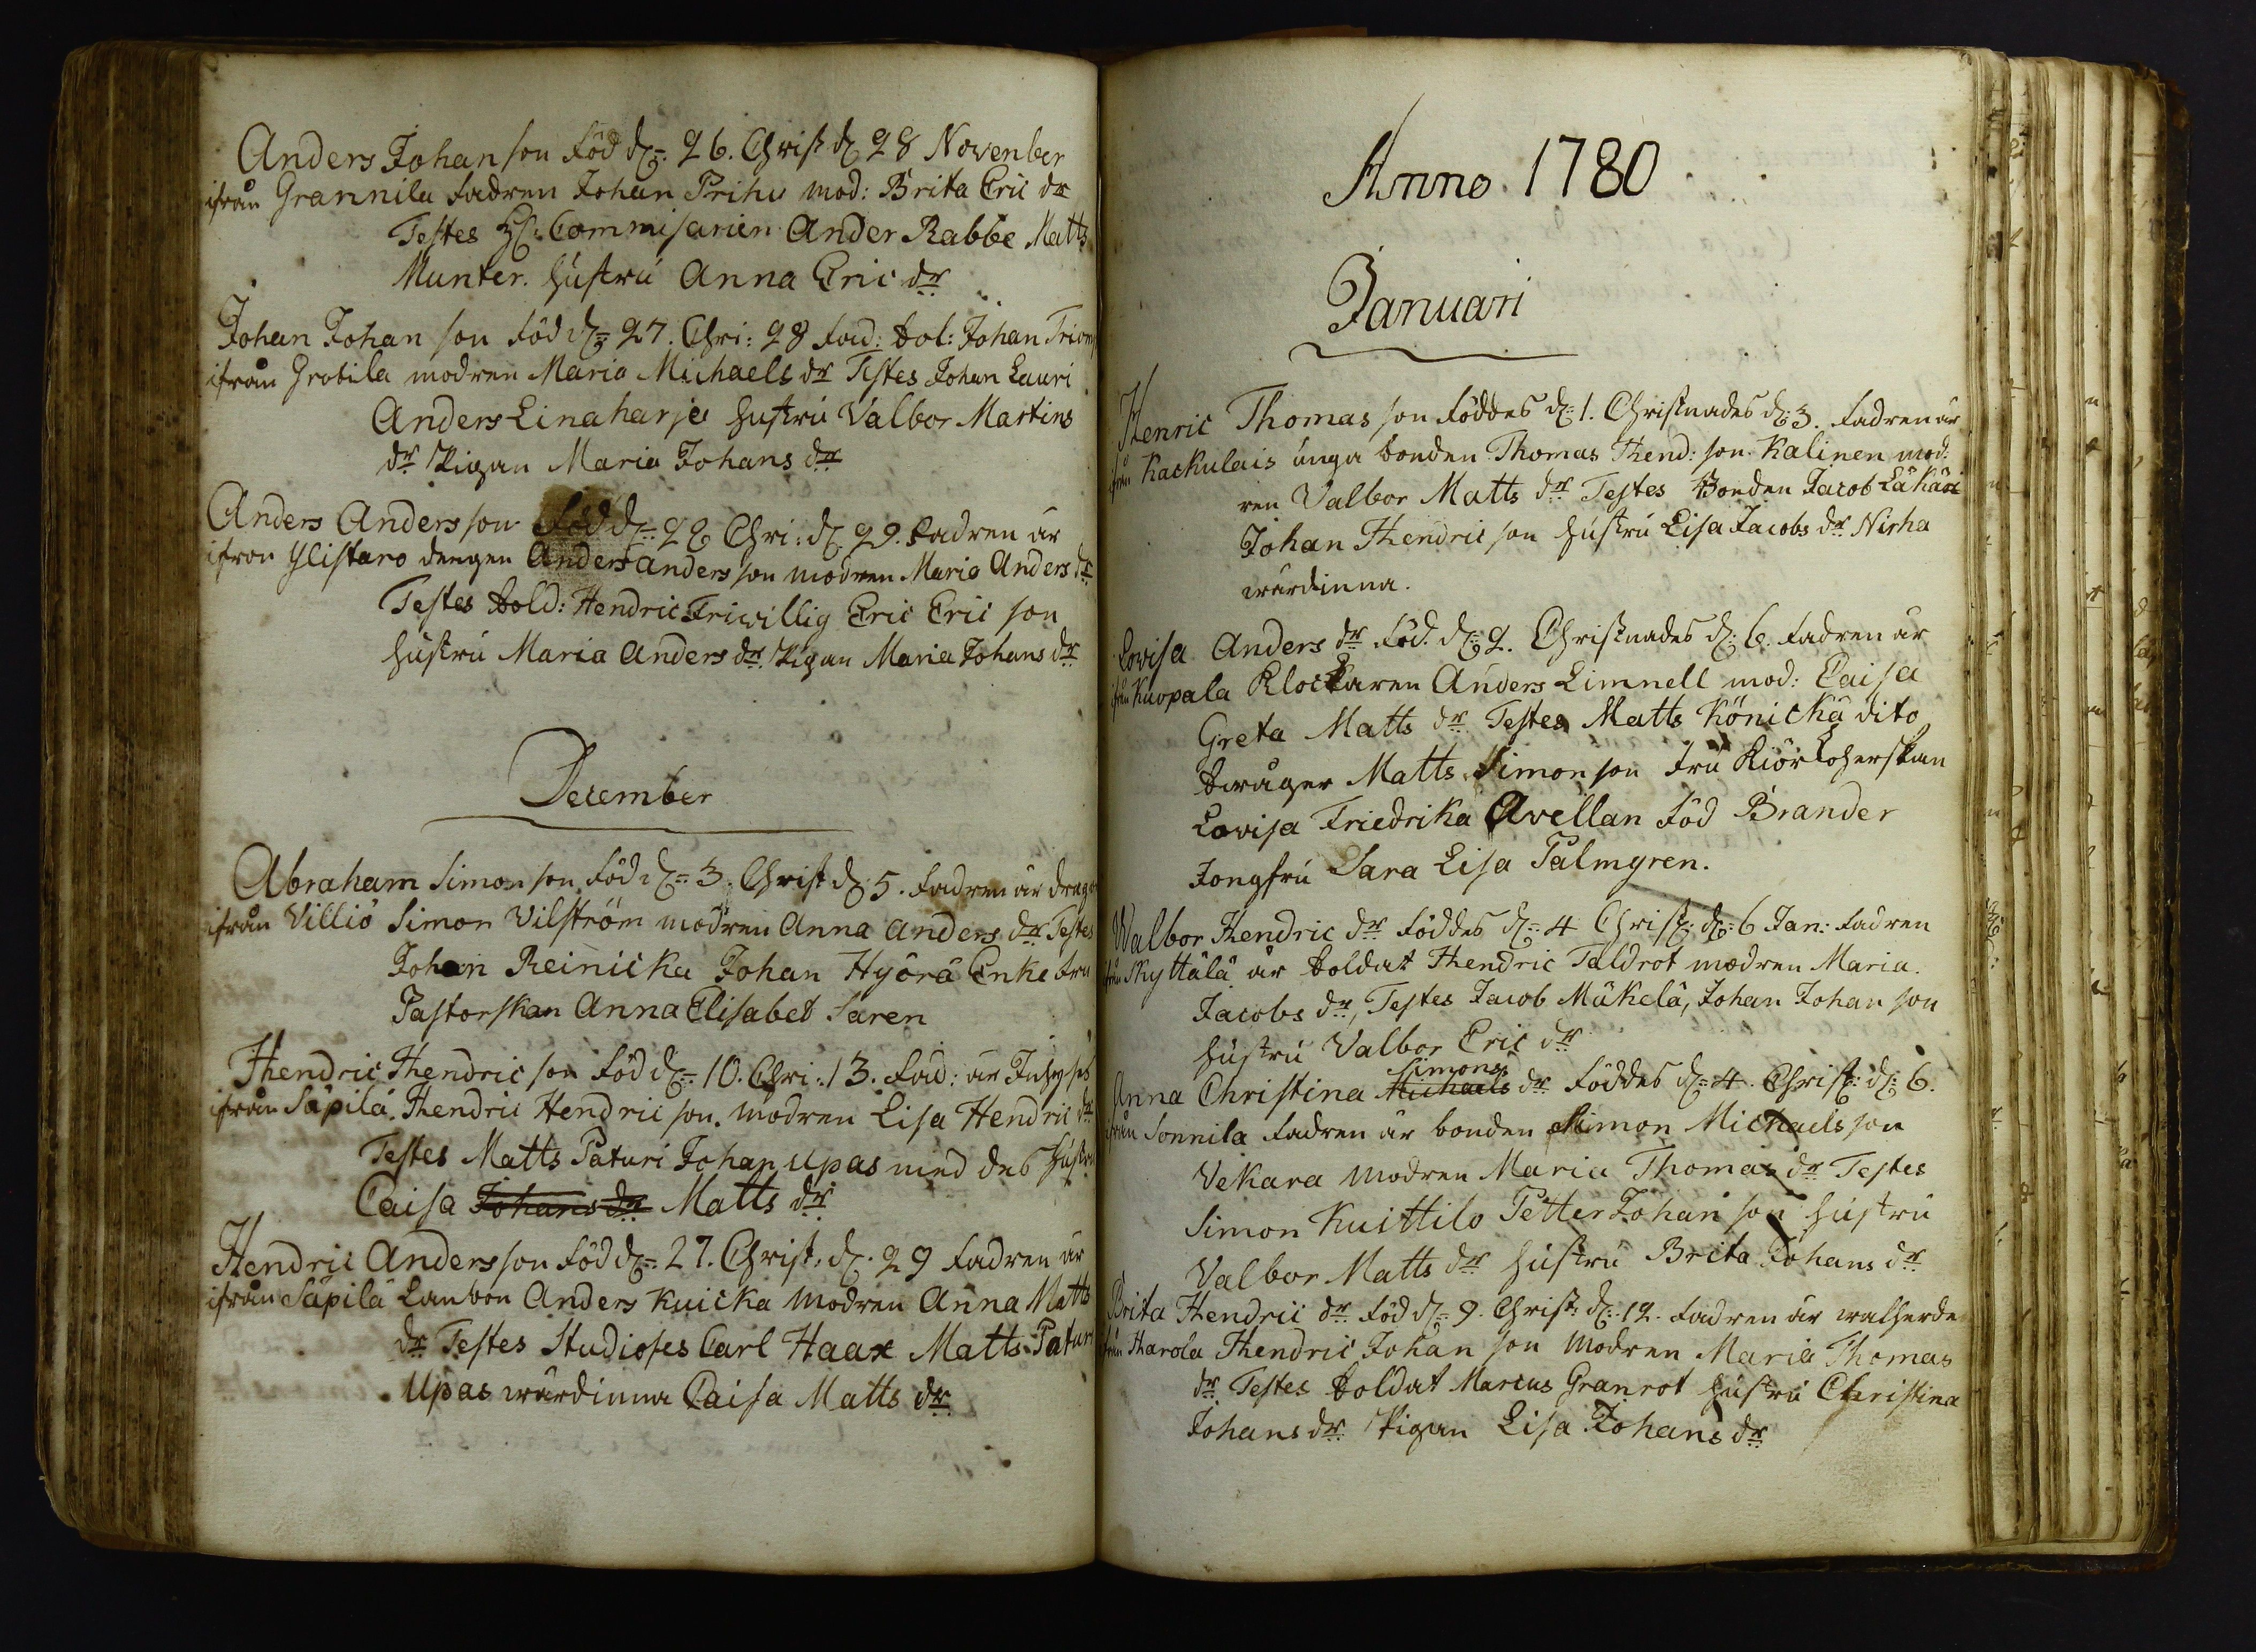 Anders Johan son föd d: 26. Christ d 28 November
ifrån Grannila fadren Johan Prihu mod: Brita Eric dr
Testes Hr: Commisarien Ander Rabbe Matts
Munter. hustru Anna Eric dr
Johan Johan son föd d: 27. Chri: 28 fad: Sol: Johan
ifrån Grotila modren Maria Michaels dr Testes Johan Lauri
Anders Linaharju hustru Valbor Martins
dr Pigan Maria Johans dr
Anders Anders son föd d: 28 Chri: d 29. fadren är
ifron Ylistaro drengen Anders Anders son modren Maria Anders dr
Testes Sold: Hendric Friwillig Eric Eric son
hustru Maria Anders dr Pigan Maria Johans dr
December
Abraham Simon son föd d: 3. Christ d. 5. fadren är drag
ifrån Villiö Simon Vilström modren Anna Anders dr Testes
Johan Reinicka Johan Hyörä Enke fru
Pastorskan Anna Elisabet Saren
Hendric Hendric son föd d: 10. Chri: 13. fad: är
ifrån Säpilä Hendric Hendric son. modren Lisa Hendric dr
Testes Matts Paturi Johan Upas med des hustru
Caisa Johans dr Matts dr
Hendric Anders son föd d: 27. Christ: d. 29 fadren är
ifrån Säpilä Lanbon Anders Kuicka modren Anna Matts
dr Testes Studioses Carl Haax Matts Paturi
Upas wärdinna Caisa Matts dr
Anno 1780
Januari
Henric Thomas son föddes d: 1. Christnades d: 3. fadren är
ifrån Kackulais unga bonden Thomas Hend: son Kalinen mod:
ren Valbor Matts dr Testes Bonden Jacob Läkäri
Johan Hendric son hustru Lisa Jacobs dr Nirha
wärdinna.
Lovisa Anders dr föd. d: 2. Christnades d: 6. fadren är
ifrån Kuopala Klockaren Anders Limnell mod: Caisa
Greta Matts dr Testes Matts Könickä dito
Swåger Matts Simon son fru
Lovisa Friedrika Avellan föd Brander
Jongfru Sara Lisa Palmgren.
Walbor Hendric dr föddes d: 4 Christ: d: 6 Jan: fadren
ifrån Skyttälä är Soldat Hendric Taldrot modren Maria
Jacobs dr, Testes Jacob Mäkelä, Johan Johan son
hustru Valbor Eric dr
Simons
Anna Christina Michaels dr föddes d: 4. Christ: d: 6.
ifrån Sonnila fadren är bonden Simon Michaels son
Vekara modren Maria Thomas dr Testes
Simon Kuittilo Petter Johan son hustru
Valbor Matts dr hustru Brita Johans dr
Brita Hendric dr föd d: 9. Christ: d: 12. fadren är walherde
ifrån Harola Hendric Johan son modren Maria Thomas
dr Testes Soldat Marcus Granrot hustru Christina
Johans dr Pigan Lisa Johans dr